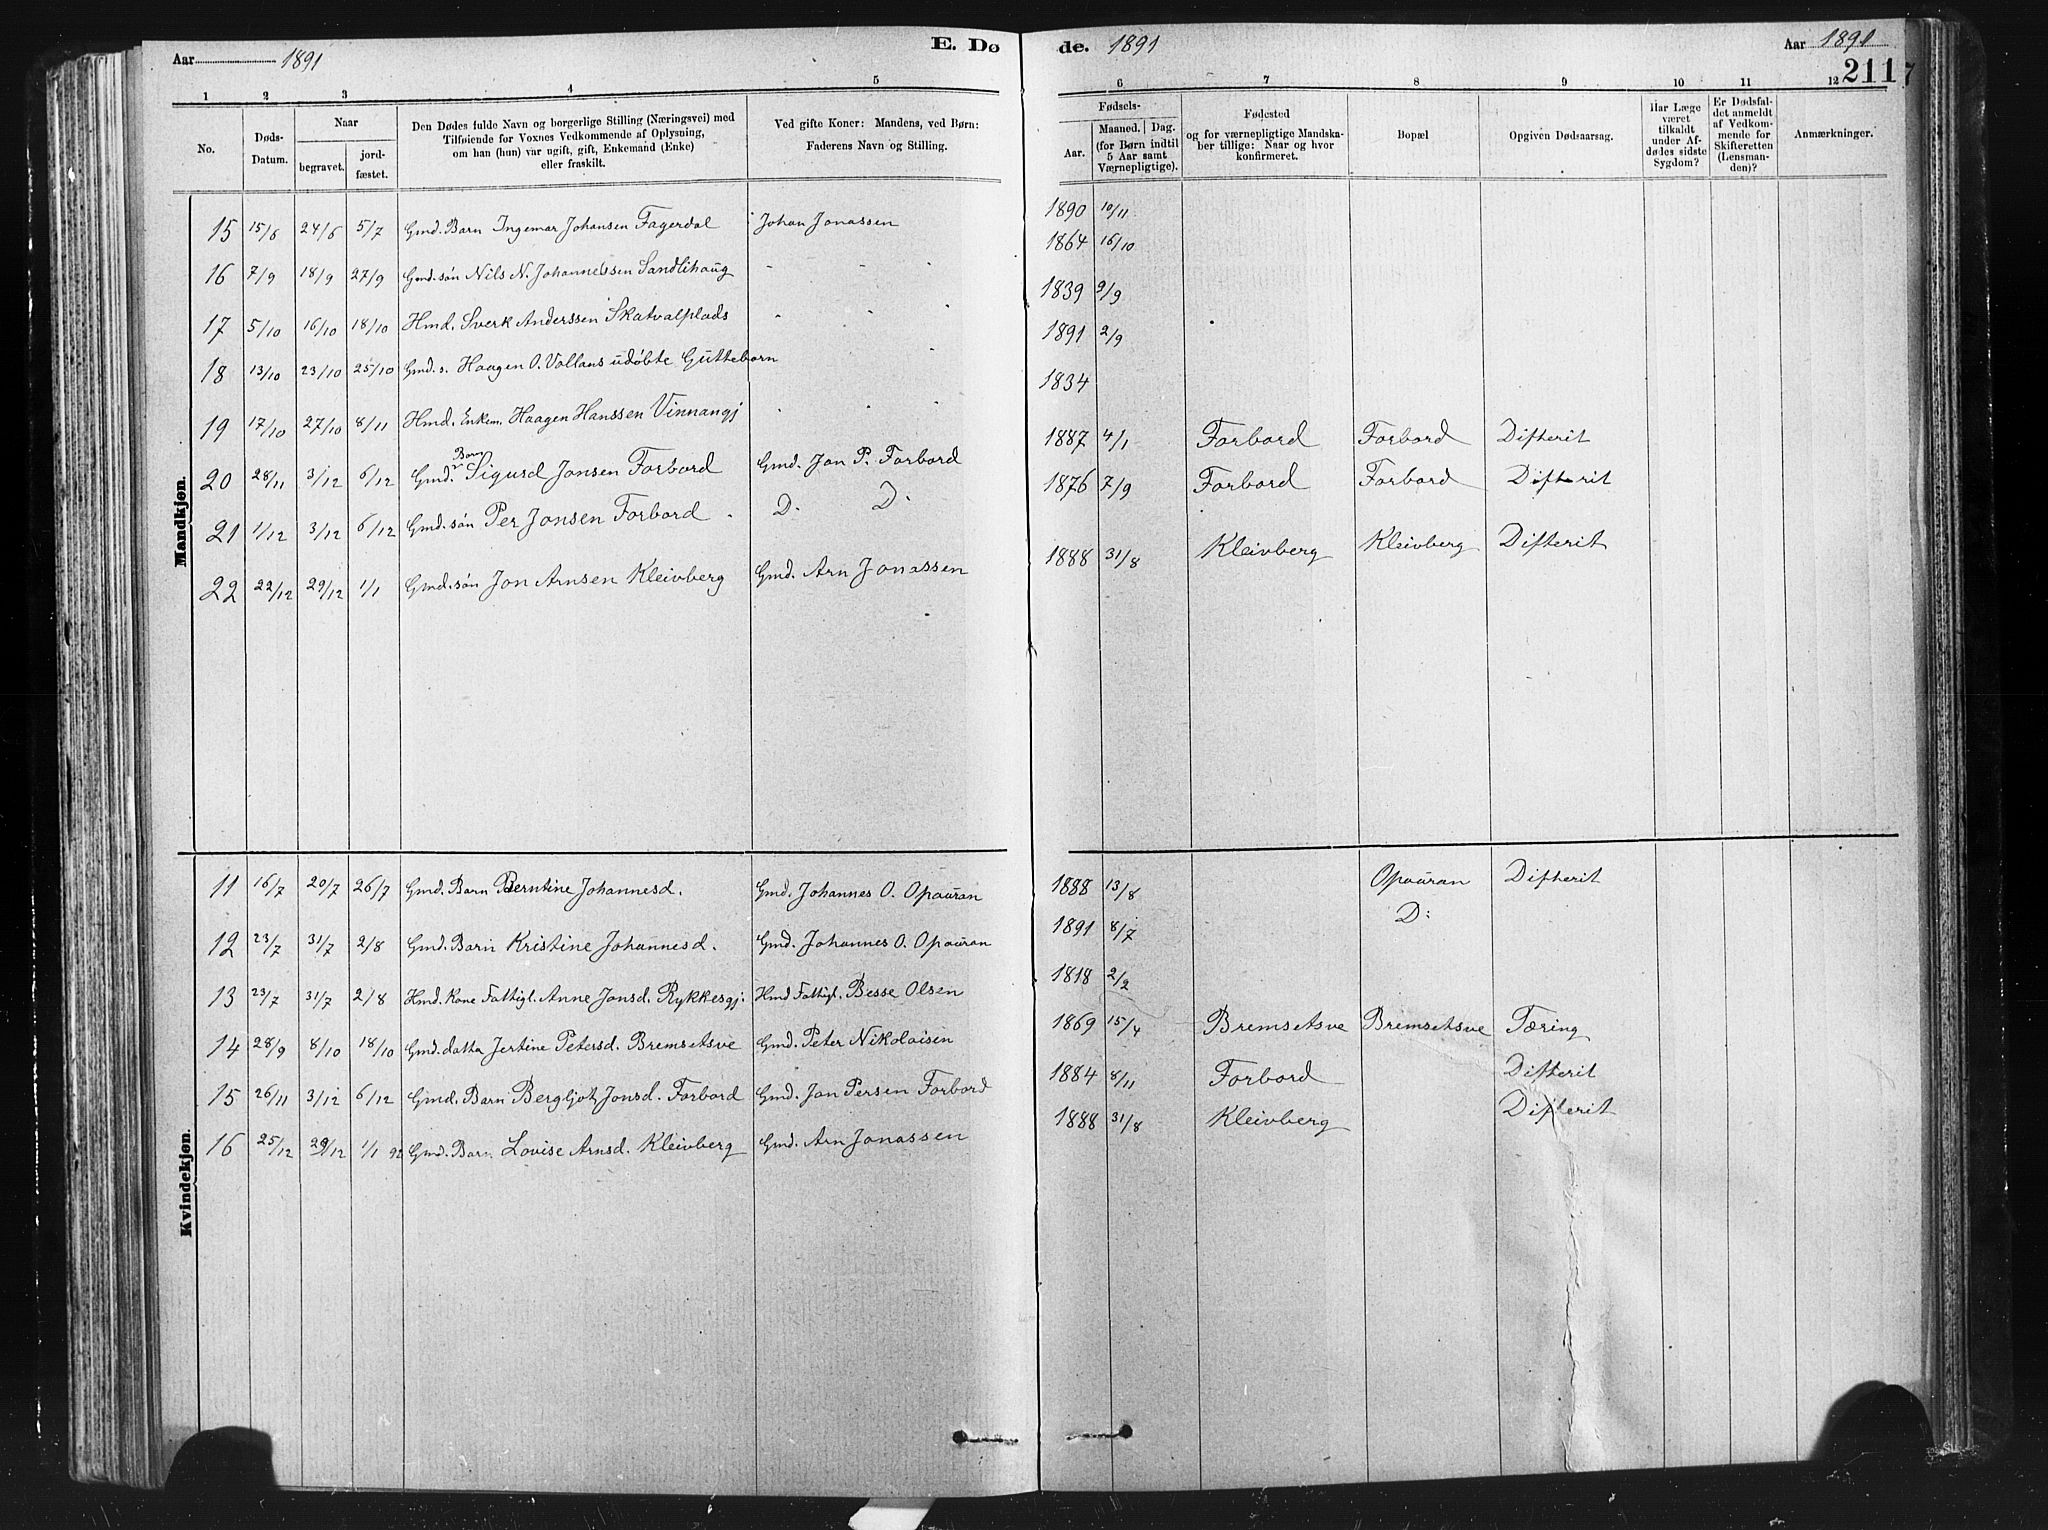 Aar 1891 E. Dø
1 2 3 4 5
No. Døds-Datum. Naar begravet. jordfæstet. Den Dødes fulde Navn og borgerlige Stilling (Næringsvei) med Tilføiende for Voxnes Vedkommende af Oplysning, om han (hun) var ugift, gift, Enkemand (Enke) eller fraskilt. Ved gifte Koner: Mandens, ved Børn: Faderens Navn og Stilling.
Mandkjøn.
15 15/6 24/6 5/7 Gmd. Barn Ingemar Johansen Fagerdal Johan Jonassen
16 7/9 18/9 27/9 Gmd. søn Nils N. Johannessen Sandlihaug - - -
17 5/10 16/10 18/10 Hmd. Sverk Anderssen Skatvalplads
18 13/10 23/10 25/10 Gmd. s. Haagen O. Vollans udøbte Guttebarn
19 17/10 27/10 8/11 Hmd. Enkem. Haagen Hanssen Vinnangj
20 28/11 3/12 6/12 Gmd. Barn Sigurd Jonsen Forbord Gmd. Jon P. Forbord
21 1/12 3/12 6/12 Gmd. søn Per Jonsen Forbord D. D.
22 22/12 29/12 1/1 Gmd. søn Jon Arnsen Kleivberg Gmd. Arn Jonassen
Kvindekjøn.
11 16/7 20/7 26/7 Gmd. Barn Berntine Johannesd. Gmd. Johannes O. Opauran
12 23/7 31/7 2/8 Gmd. Barn Kristine Johannesd. Gmd. Johannes O. Opauran
13 23/7 31/7 2/8 Hmd. Kone Fattigl. Anne Jonsd. Rykkesgj. Hmd Fattigl. Besse Olsen
14 28/9 8/10 18/10 Gmd. datta Jertine Petersd. Bremsetsve Gmd. Peter Nikolaisen
15 26/11 3/12 6/12 Gmd. Barn Bergljot Jonsd. Forbord Gmd. Jon Persen Forbord
16 25/12 29/12 1/1 92 Gmd. Barn Lovise Arnsd. Kleivberg Gmd. Arn Jonassen
de. 1891 Aar 1891
211
6 7 8 9 10 11 12
Fødsels- Aar. Maaned. Dag. (for Børn indtil 5 Aar samt Værnepligtige). Fødested og for værnepligtige Mandskaber tillige: Naar og hvor konfirmeret. Bopæl Opgiven Dødsaarsag. Har Læge været tilkaldt under Afdødes sidste Sygdom? Er Dødsfaldet anmeldt af Vedkommende for Skifteretten (Lensmanden)? Anmærkninger.
1890 10/11
1864 16/10
1839 9/9
1891 2/9
1834
1887 4/1 Forbord Forbord Difterit
1876 7/9 Forbord Forbord Difterit
1888 31/8 Kleivberg Kleivberg Difterit
1888 13/8 Opauran Difterit
1891 8/7 D:
1818 2/2
1869 15/4 Bremsetsve Bremsetsve Tæring
1884 8/11 Forbord Difterit
1888 31/8 Kleivberg Difterit